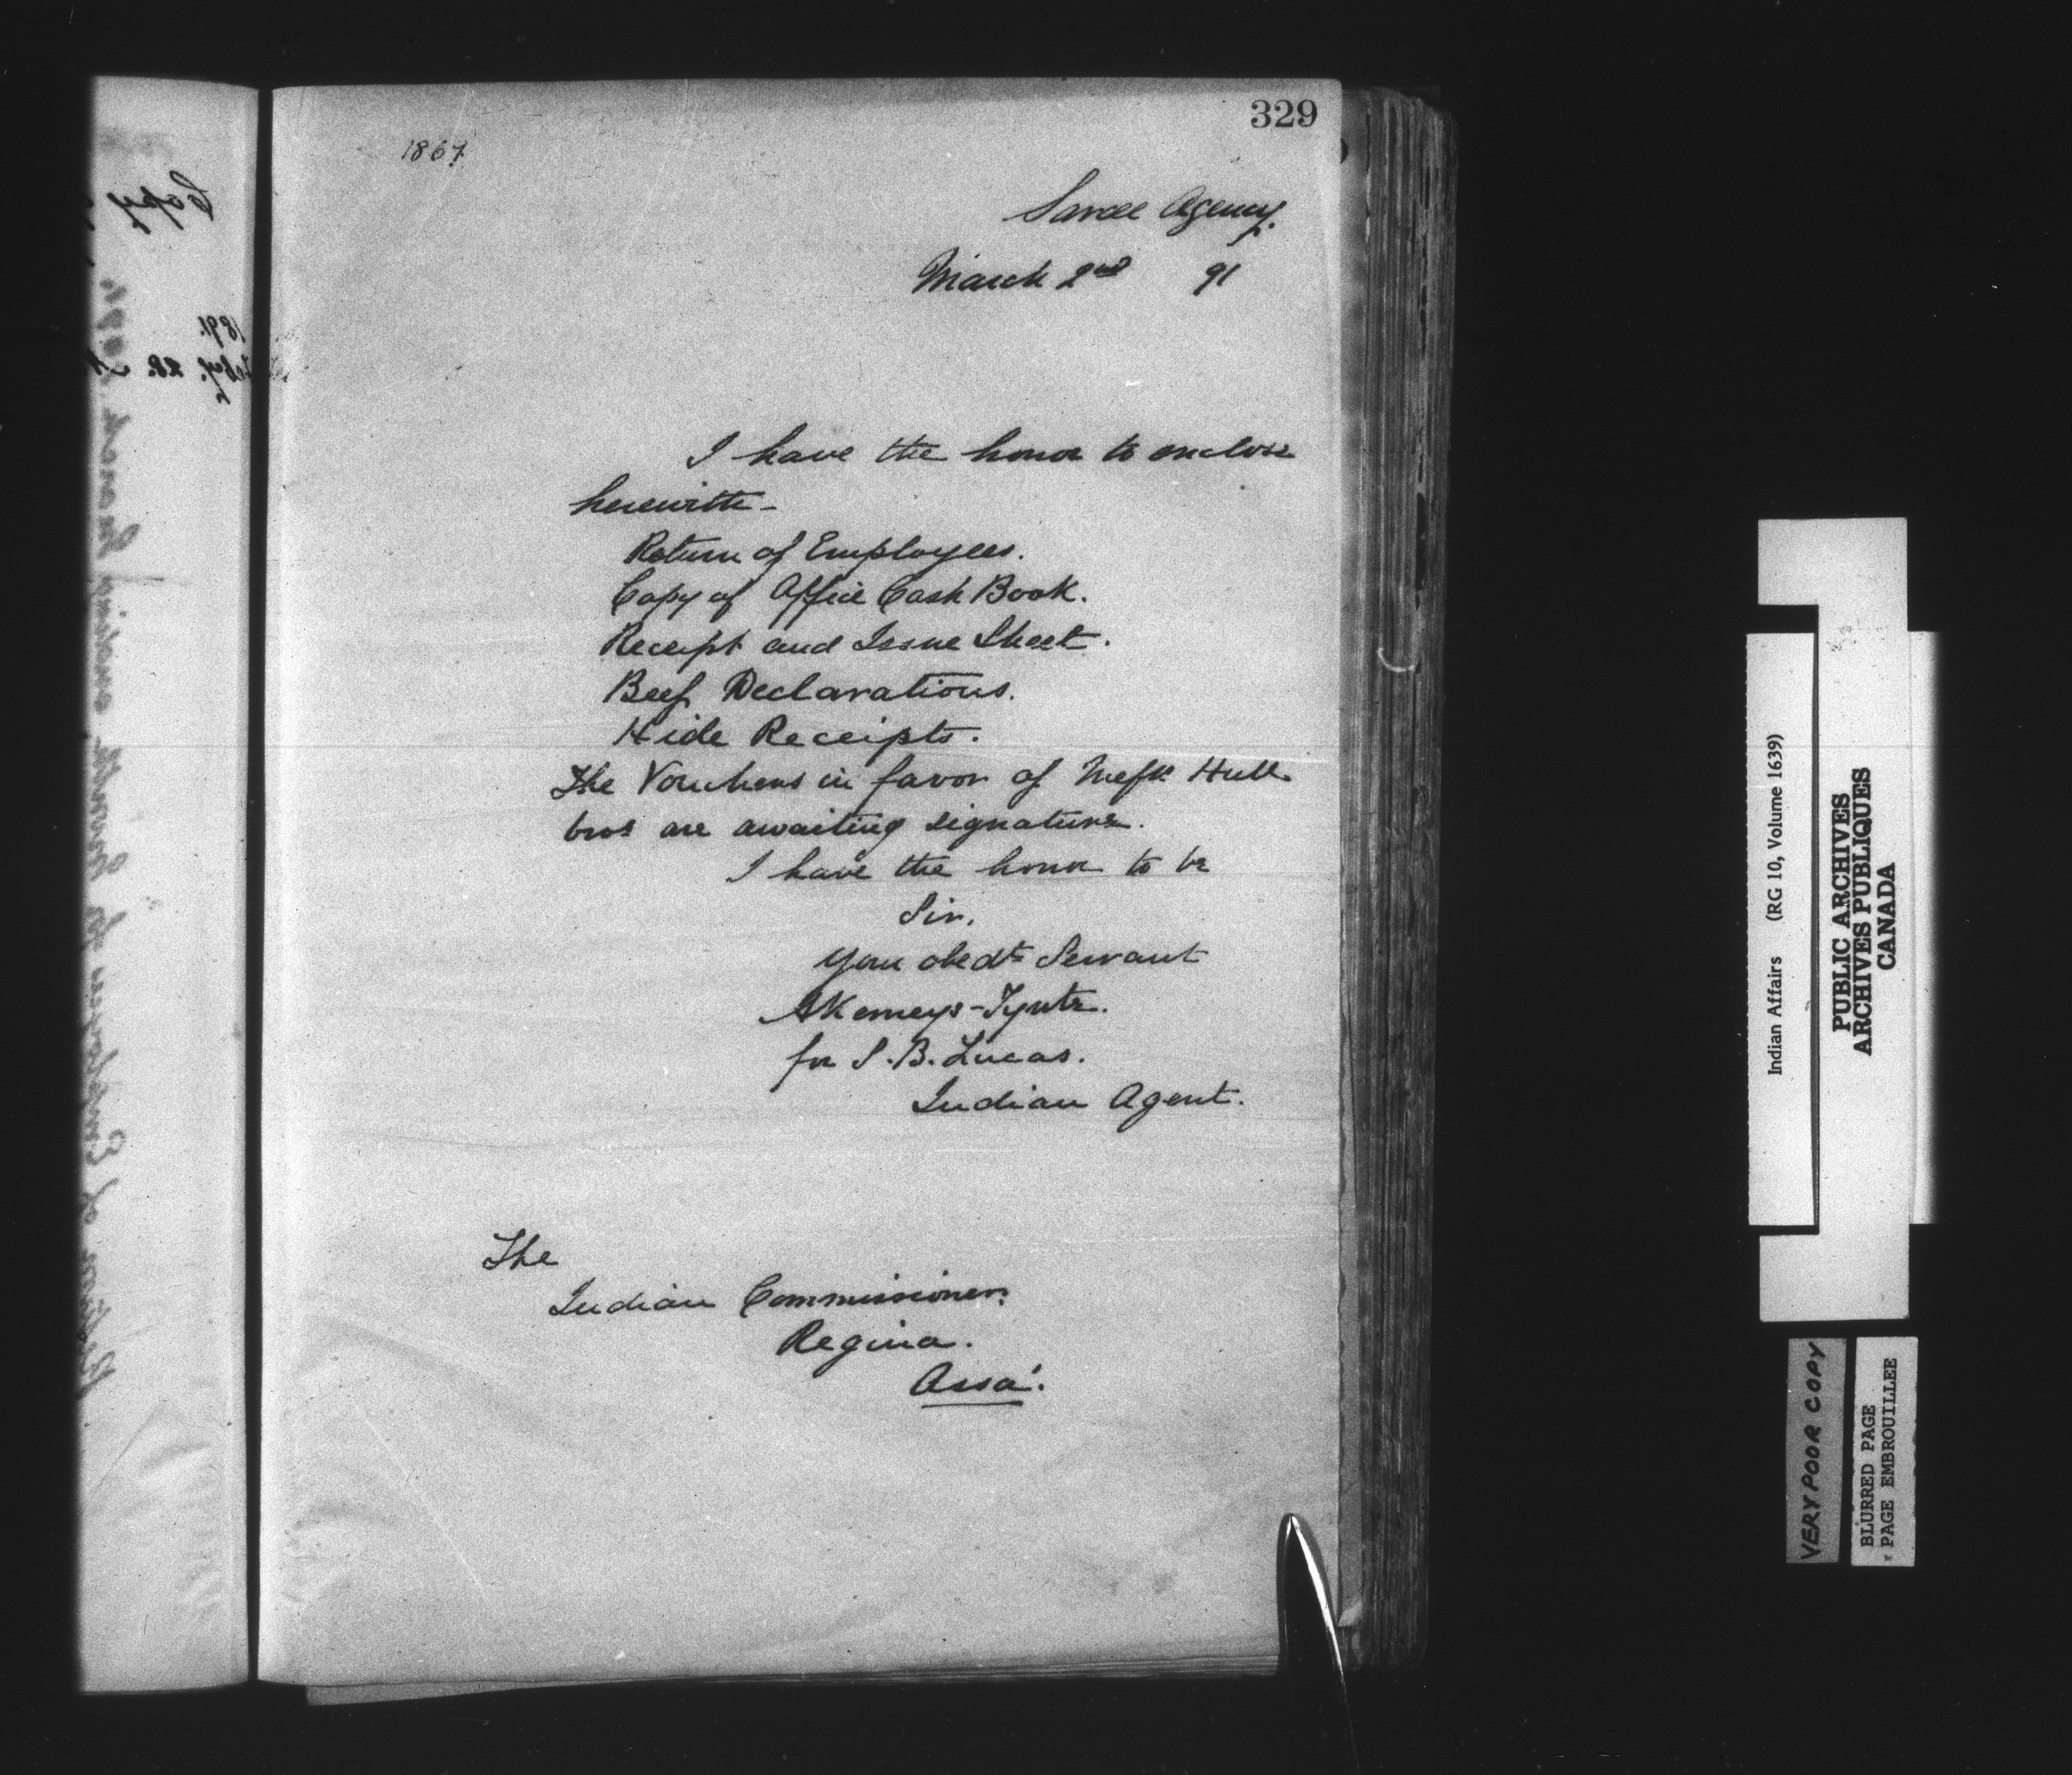 329
1867
Sarcee Agency.
March 2nd 91
I have the honor to enclose
herewith-
Return of Employees.
Copy of Office Cash Book.
Receipt and Issue Sheet.
Beef Declarations.
Hide Receipts.
The Vouchers in favor of Messrs Hull
bros are awaiting signature.
I have the honor to be
Sir,
Your obedt Servant
AKemeys-Tynte.
for S. B. Lucas.
Indian Agent.
The
Indian Commissioner,
Regina.
Assa.
Copy
1891.
Feby. 28.
Return of Employees for month ending March
Indian Affairs (RG 10, Volume 1639)
PUBLIC ARCHIVES
ARCHIVES PUBLIQUES
CANADA
VERY POOR COPY
BLURRED PAGE
PAGE EMBROUILLEE